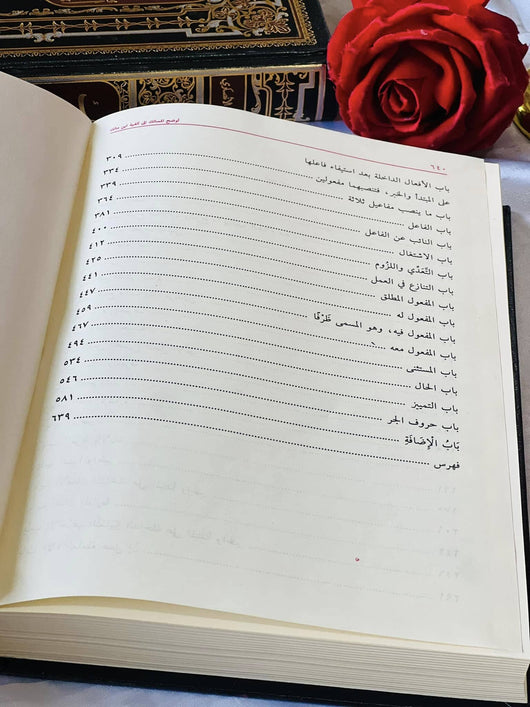 ٦٤٠ أوضح المسالك إلى ألفية ابن مالك
باب الأفعال الداخلة بعد استيفاء فاعلها
على المبتدأ والخبر، فتنصبهما مفعولين ٣٠٩
باب ما ينصب مفاعيل ثلاثة ٣٣٤
باب الفاعل ٣٣٩
باب النائب عن الفاعل ٣٦٤
باب الاشتغال ٣٨١
باب التَّعَدِّي واللزُوم ٤٠٠
باب التنازع في العمل ٤١٢
باب المفعول المطلق ٤٢٥
باب المفعول له ٤٤١
باب المفعول فيه، وهو المسمى ظَرْفًا ٤٤٧
باب المفعول معه ٤٥٩
باب المستثنى ٤٦٧
باب الحال ٤٩٤
باب التمييز ٥٣٤
باب حروف الجر ٥٤٦
بَابُ الْإِضَافَةِ ٥٨١
فهرس ٦٣٩